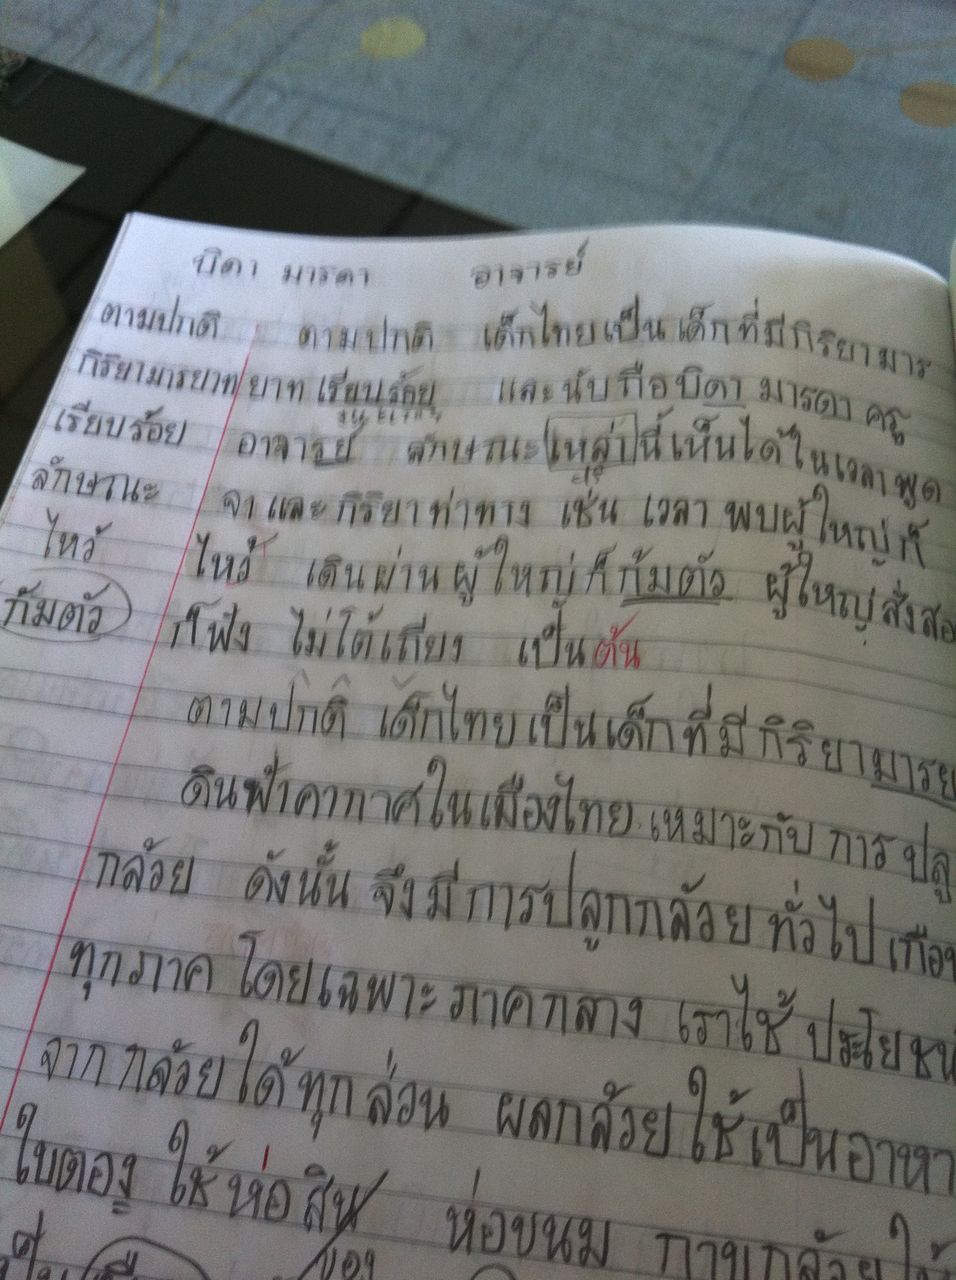 บิดา มารดา อาจารย์
ตามปกติ ตามปกติ เด็กไทยเป็นเด็กที่มีกิริยามาร
กิริยามารยาท ยาท เรียบร้อย และนับถือบิดา มารดา ครู
เรียบร้อย อาจารย์ ลักษณะเหล่านี้เห็นได้ในเวลาพูด
ลักษณะ จาและกิริยาท่าทาง เช่น เวลา พบผู้ใหญ่ก็
ไหว้ ไหว้ เดินผ่านผู้ใหญ่ก็ก้มตัว ผู้ใหญ่สั่งสอ
ก้มตัว ก็ฟัง ไม่โต้เถียง เป็นต้น
ตามปกติ เด็กไทยเป็นเด็กที่มีกิริยามารย
ดินฟ้าอากาศในเมืองไทย เหมาะกับ การ ปลู
กล้วย ดังนั้น จึงมีการปลูกกล้วย ทั่วไป เกือบ
ทุกภาค โดยเฉพาะ ภาคกลาง เราใช้ ประโยชน์
จาก กล้วยได้ทุกส่วน ผลกล้วยใช้เป็นอาหา
ใบตอง ใช้ห่อสิน ห่อขนม กาบกล้วยใช้
ของ